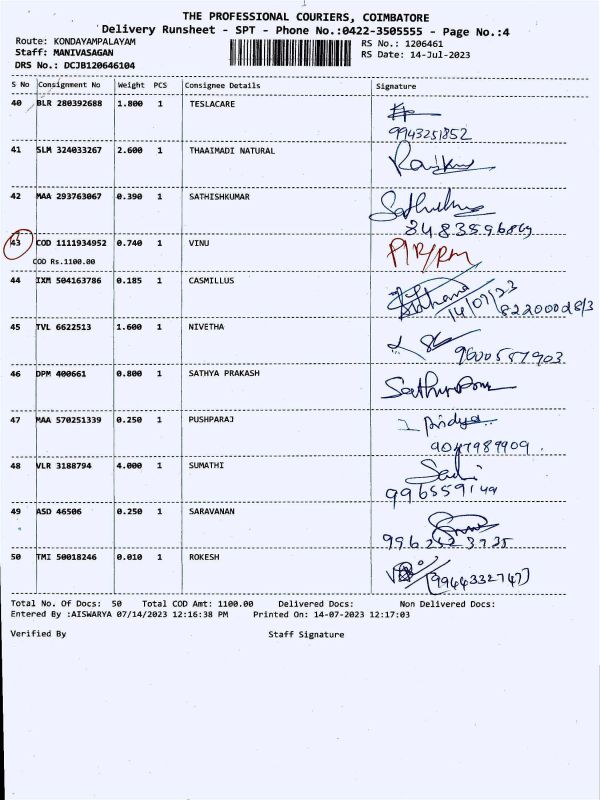 THE PROFESSIONAL COURIERS, COIMBATORE
Delivery Runsheet - SPT - Phone No.:0422-3505555 - Page No.:4
Route: KONDAYAMPALAYAM
Staff: MANIVASAGAN
DRS No.: DCJB120646104
RS No.: 1206461
RS Date: 14-Jul-2023
S No Consignment No Weight PCS Consignee Details Signature
40 BLR 280392688 1.800 1 TESLACARE
9943251852
41 SLM 324033267 2.600 1 THAAIMADI NATURAL
42 MAA 293763067 0.390 1 SATHISHKUMAR
43 COD 1111934952 0.740 1 VINU
COD Rs.1100.00
44 IXM 504163786 0.185 1 CASMILLUS
14/07/23
45 TVL 6622513 1.600 1 NIVETHA
9600557903
46 DPM 400661 0.800 1 SATHYA PRAKASH
47 MAA 570251339 0.250 1 PUSHPARAJ
9047989909
48 VLR 3188794 4.000 1 SUMATHI
49 ASD 46506 0.250 1 SARAVANAN
50 TMI 50018246 0.010 1 ROKESH
(9944332747)
Total No. Of Docs: 50 Total COD Amt: 1100.00 Delivered Docs: Non Delivered Docs:
Entered By :AISWARYA 07/14/2023 12:16:38 PM Printed On: 14-07-2023 12:17:03
Verified By Staff Signature